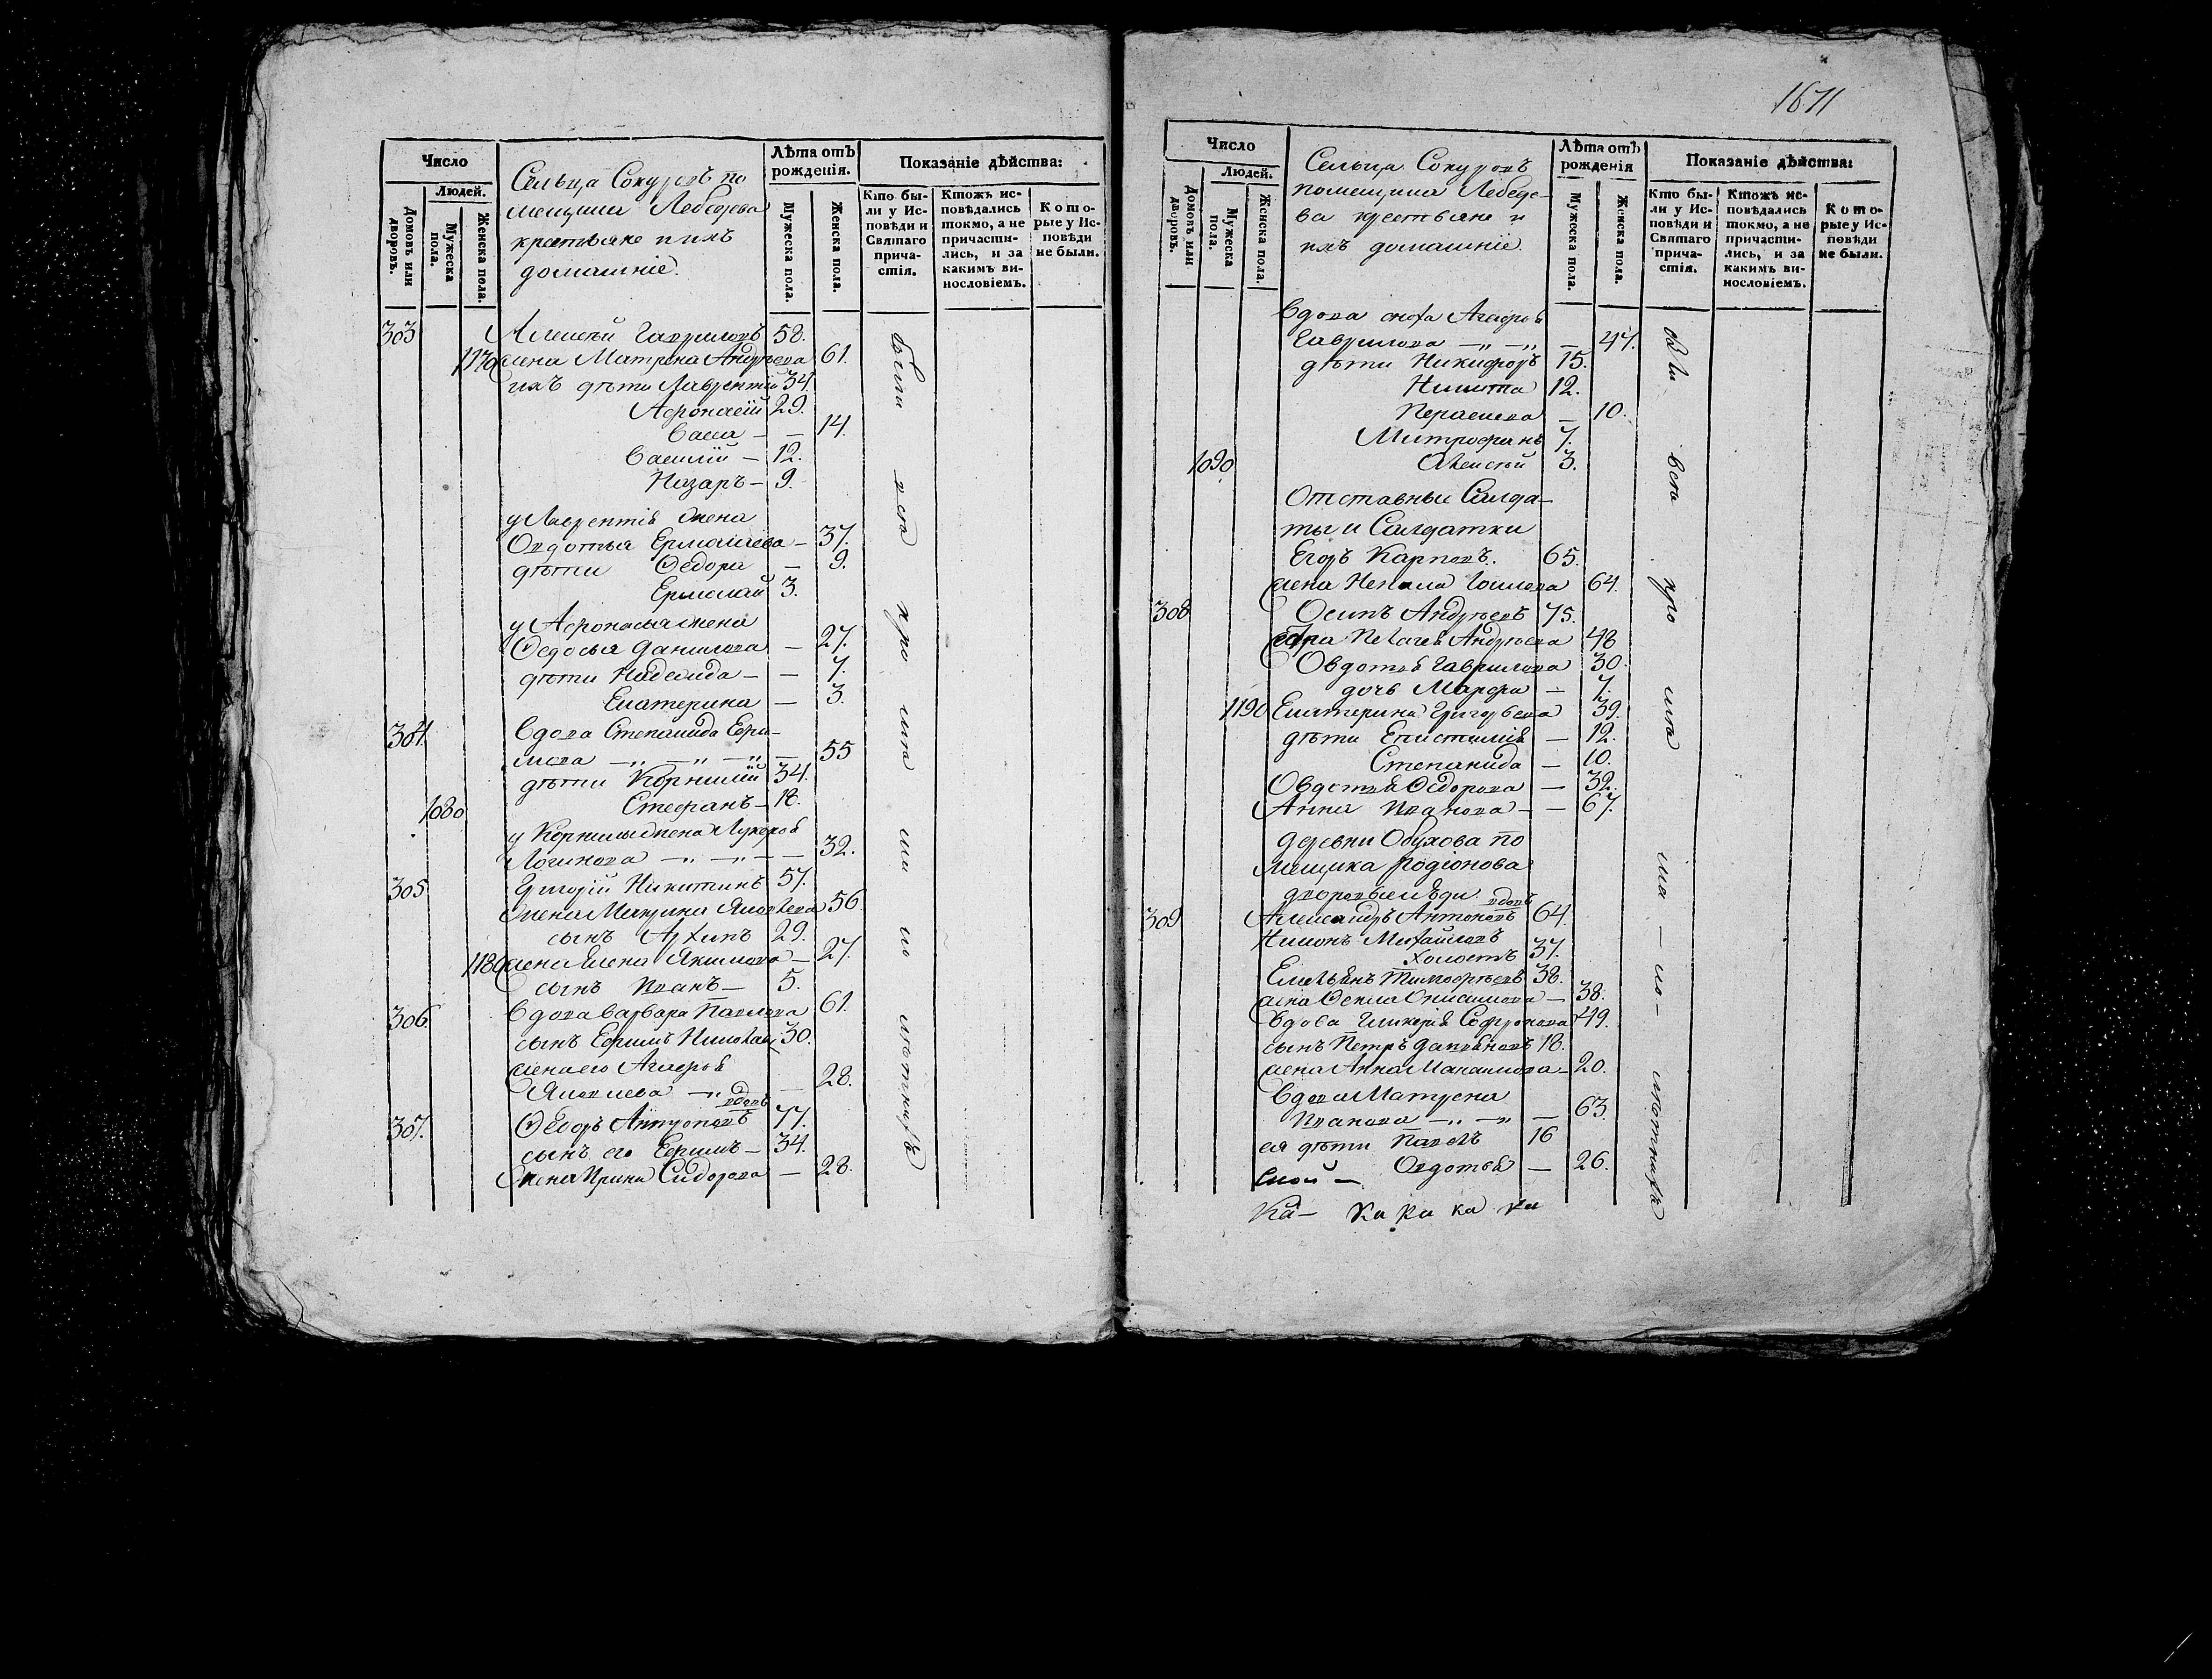 Число
Людей.
Домовъ или дворовъ.
Мужеска пола.
Женска пола.
Сельца Сокуровъ по
мещика Лебедева
крестьяне и ихъ
домашніе.
Лѣта отъ рожденія.
Мужеска пола.
Женска пола.
Показаніе дѣйства:
Кто бы-
ли у Ис-
повѣди и
Святаго
прича-
стія.
Ктожъ ис-
повѣдались
токмо, а не
причасти-
лись, и за
какимъ ви-
нословіемъ.
Кото-
рые у Ис-
повѣди
не были.
303 Алексѣй Гавриловъ 58.
1170 жена Матрена Андреева 61.
ихъ дѣти Лаврентій 34.
Афонасій 29.
Васса — — 14.
Василій — 12.
Назаръ — 9.
у Лаврентія жена
Овдотья Ермолаева — 37.
дѣти Ѳедора — 9.
Ермолай 3.
у Афонасья жена
Ѳедосья Данилова — 27.
дѣти Надежда — — 7.
Екатерина — 3.
304. Вдова Степанида Ефи-
мова — „ — „ — „ — 55
дѣти Корнилій 34.
1080 Стефанъ — 18.
у Корнилы жена Лукерья
Логинова — „ — „ — — 32.
305. Григорій Никитинъ 57.
жена Марина Яковлева 56
сынъ Архипъ 29.
1180 жена Елена Якимова — 27.
сынъ Иванъ — 5.
306. Вдова Варвара Павлова 61.
сынъ Ефимъ Николаи 30.
жена его Агафья
Яковлева — „ — 28.
вдовъ
307. Ѳедоръ Антроповъ 77.
сынъ его Ефимъ — 34.
жена Ирина Сидорова — 28.
были
вст
про
1671
Число
Людей.
Домовъ или дворовъ.
Мужеска пола.
Женска пола.
Сельца Сокуровъ
помещика Лебеде-
ва крестьяне и
ихъ домашніе
Лѣта отъ рожденія
Мужеска пола.
Женска пола.
Показаніе дѣйства:
Кто бы-
ли у Ис-
повѣди и
Святаго
прича-
стія.
Ктожъ ис-
повѣдались
токмо, а не
причасти-
лись, и за
какимъ ви-
нословіемъ.
Кото-
рые у Ис-
повѣди
не были.
Вдова сноха Агафья
Гаврилова — „ — „ — 47.
дѣти Никифоръ 15.
Никита 12.
Параскева — 10.
Митрофанъ 7.
1090 Алексѣй 3.
Отставные Салда-
ты и Салдатки
Егоръ Карповъ. 65.
жена Ненила 64.
308 Осипъ Андреевъ 75.
жена Пелагея Андреева 48
Овдотья Гаврилова 30.
дочь Марфа — 7.
1190 Екатерина Григорьева 39.
дѣти Епистимія — 12.
Степанида — 10.
Овдотья Ѳедорова — 32.
Анна Иванова — — 67.
деревни Обухова по
мещика Родіонова
дворовые люди
вдовъ
309 Александръ Антоновъ 64.
Никонъ Михайловъ
холостъ 37.
Емельянъ Тимофеевъ 38.
жена Ѳекла Онисимова — 38.
Вдова Гликерія Софронова 49.
сынъ Петръ Демьяновъ 18.
жена Анна Максимова — 20.
Вдова Матрена
Иванова — „ — „ — 63.
ея дѣти Павелъ 16
Овдотья — 26.
Ка — Ка Ка ка ка